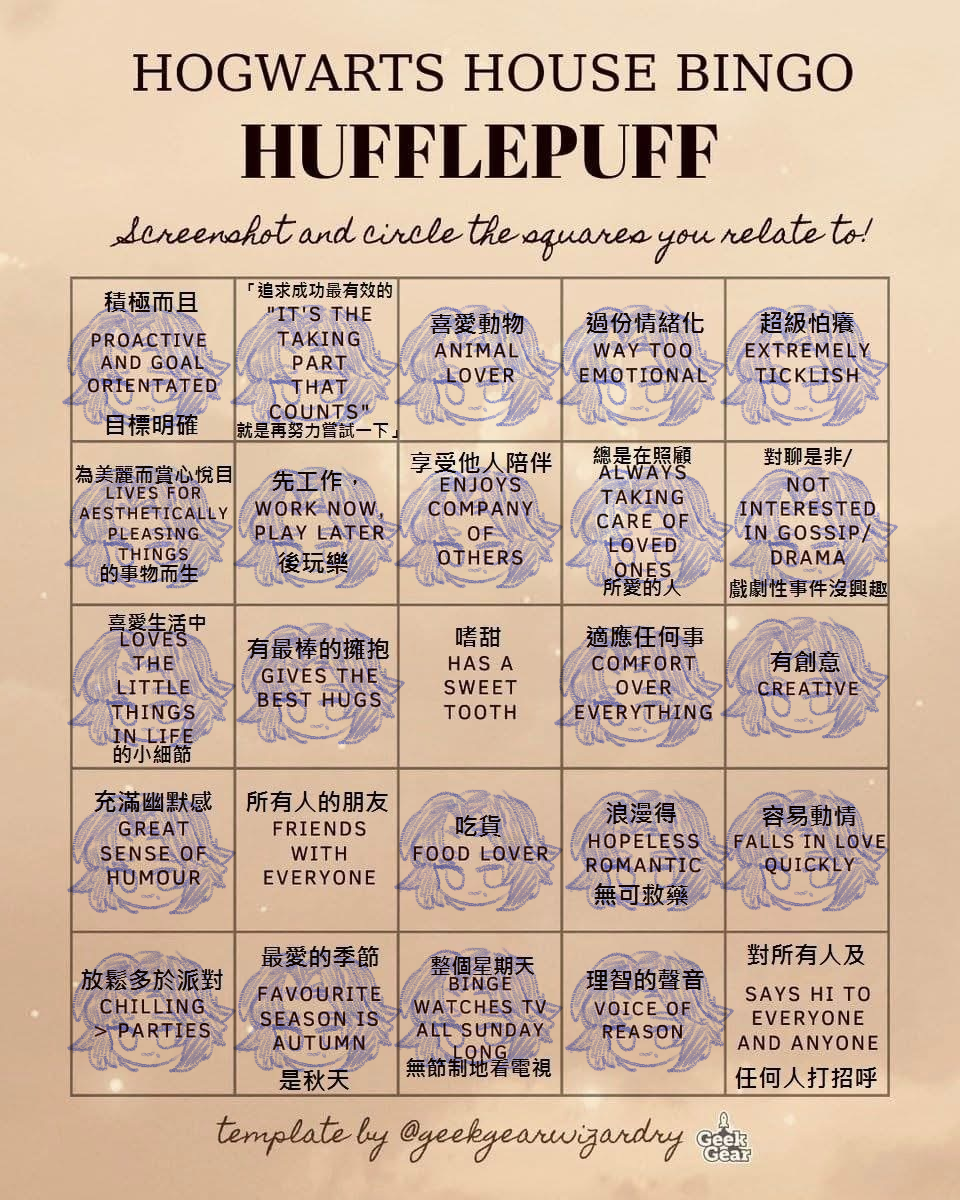 HOGWARTS HOUSE BINGO
HUFFLEPUFF
Screenshot and circle the squares you relate to!
積極而且
PROACTIVE
AND GOAL
ORIENTATED
目標明確
「追求成功最有效的
"IT'S THE
TAKING
PART
THAT
COUNTS"
就是再努力嘗試一下」
喜愛動物
ANIMAL
LOVER
過份情緒化
WAY TOO
EMOTIONAL
超級怕癢
EXTREMELY
TICKLISH
為美麗而賞心悅目
LIVES FOR
AESTHETICALLY
PLEASING
THINGS
的事物而生
先工作，
WORK NOW,
PLAY LATER
後玩樂
享受他人陪伴
ENJOYS
COMPANY
OF
OTHERS
總是在照顧
ALWAYS
TAKING
CARE OF
LOVED
ONES
所愛的人
對聊是非/
NOT
INTERESTED
IN GOSSIP/
DRAMA
戲劇性事件沒興趣
喜愛生活中
LOVES
THE
LITTLE
THINGS
IN LIFE
的小細節
有最棒的擁抱
GIVES THE
BEST HUGS
嗜甜
HAS A
SWEET
TOOTH
適應任何事
COMFORT
OVER
EVERYTHING
有創意
CREATIVE
充滿幽默感
GREAT
SENSE OF
HUMOUR
所有人的朋友
FRIENDS
WITH
EVERYONE
吃貨
FOOD LOVER
浪漫得
HOPELESS
ROMANTIC
無可救藥
容易動情
FALLS IN LOVE
QUICKLY
放鬆多於派對
CHILLING
> PARTIES
最愛的季節
FAVOURITE
SEASON IS
AUTUMN
是秋天
整個星期天
BINGE
WATCHES TV
ALL SUNDAY
LONG
無節制地看電視
理智的聲音
VOICE OF
REASON
對所有人及
SAYS HI TO
EVERYONE
AND ANYONE
任何人打招呼
template by @geekgearwizardry
Geek
Gear